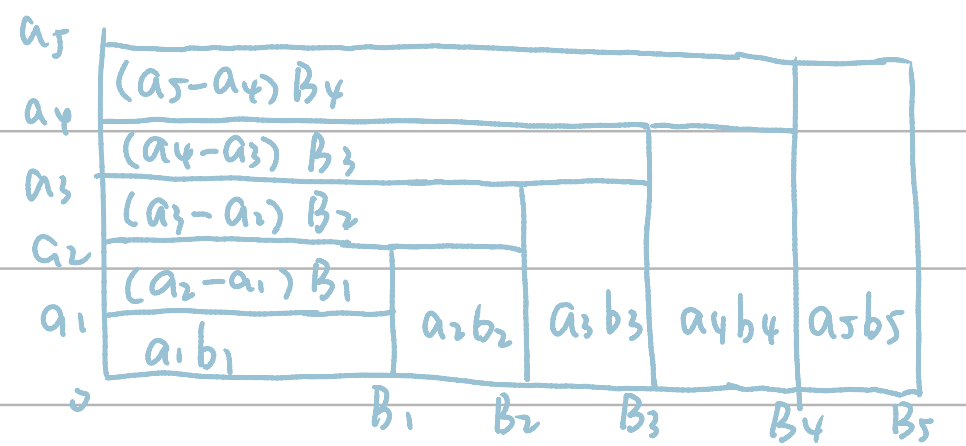 a5
(a5-a4) B4
a4
(a4-a3) B3
a3
(a3-a2) B2
a2
(a2-a1) B1
a1
a1b1 a2b2 a3b3 a4b4 a5b5
0 B1 B2 B3 B4 B5